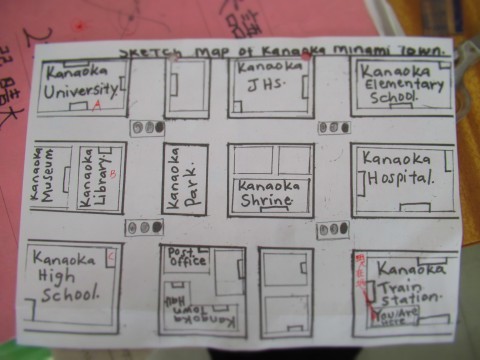 Sketch Map of Kanaoka Minami Town.
Kanaoka
University
A
Kanaoka
JHS.
Kanaoka
Elementary
School.
Kanaoka
Museum
Kanaoka
Library
B
Kanaoka
Park.
Kanaoka
Shrine.
Kanaoka
Hospital.
Kanaoka
High
School.
C
Post
Office
Kanaoka
Town
Hall
Kanaoka
Train
Station.
You Are
Here
現在地